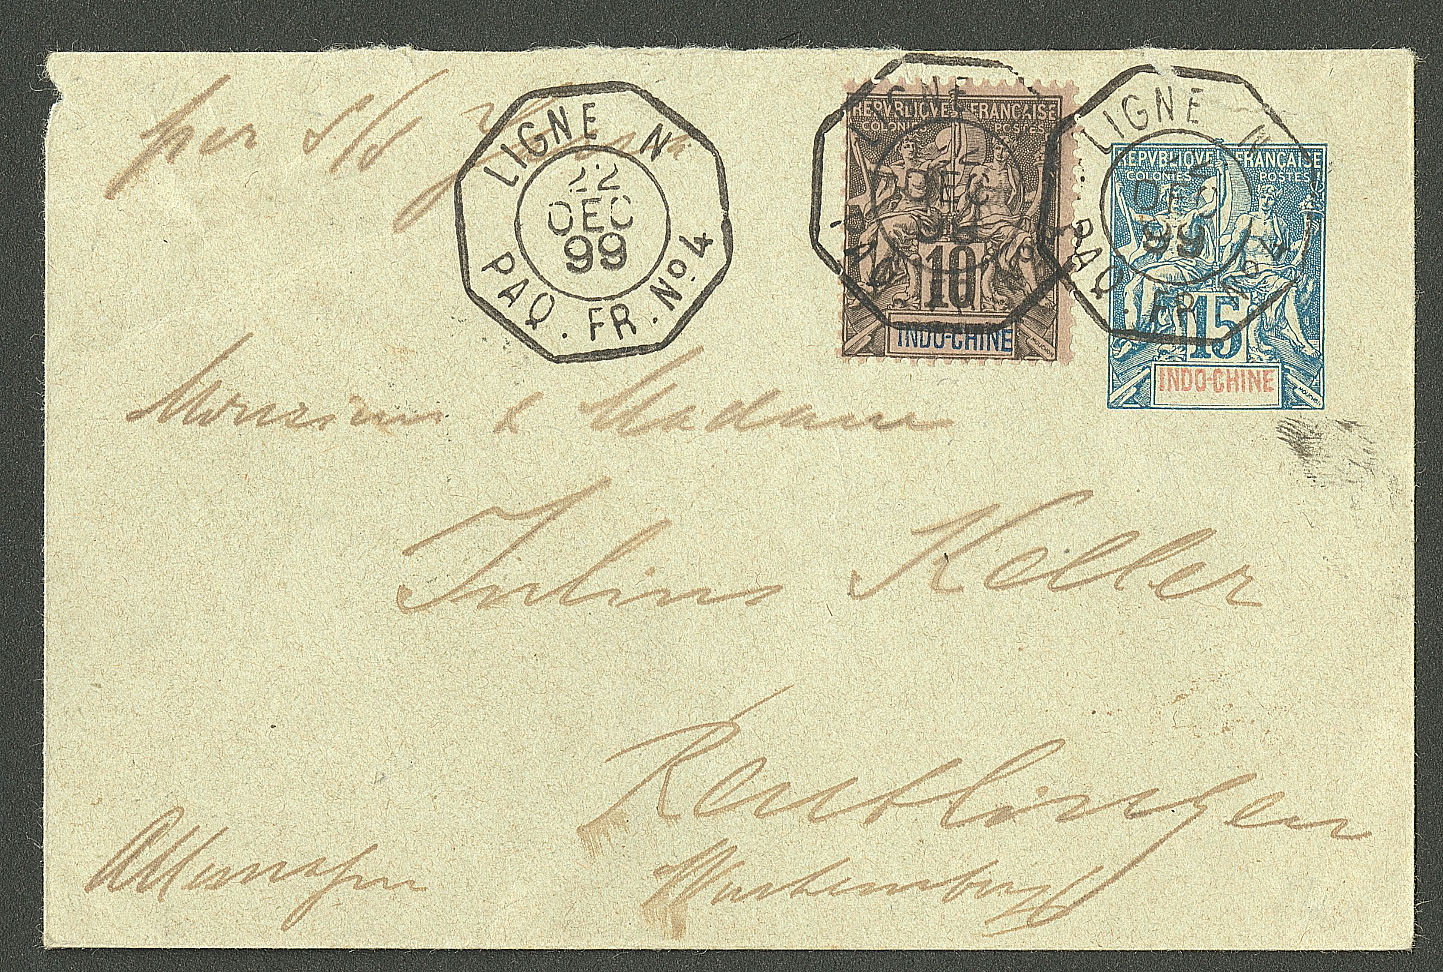 per S/S
LIGNE N
22
DEC
99
PAQ. FR. No 4
REPVBLIQVE FRANÇAISE
COLONIES POSTES
DEC
10
INDO-CHINE
LIGNE N
99
PAQ. FR. No 4
REPVBLIQVE FRANÇAISE
COLONIES POSTES
15
INDO-CHINE
MOUCHON
Monsieur & Madame
Julius Keller
Reutlingen
Allemagne
Wurtemberg